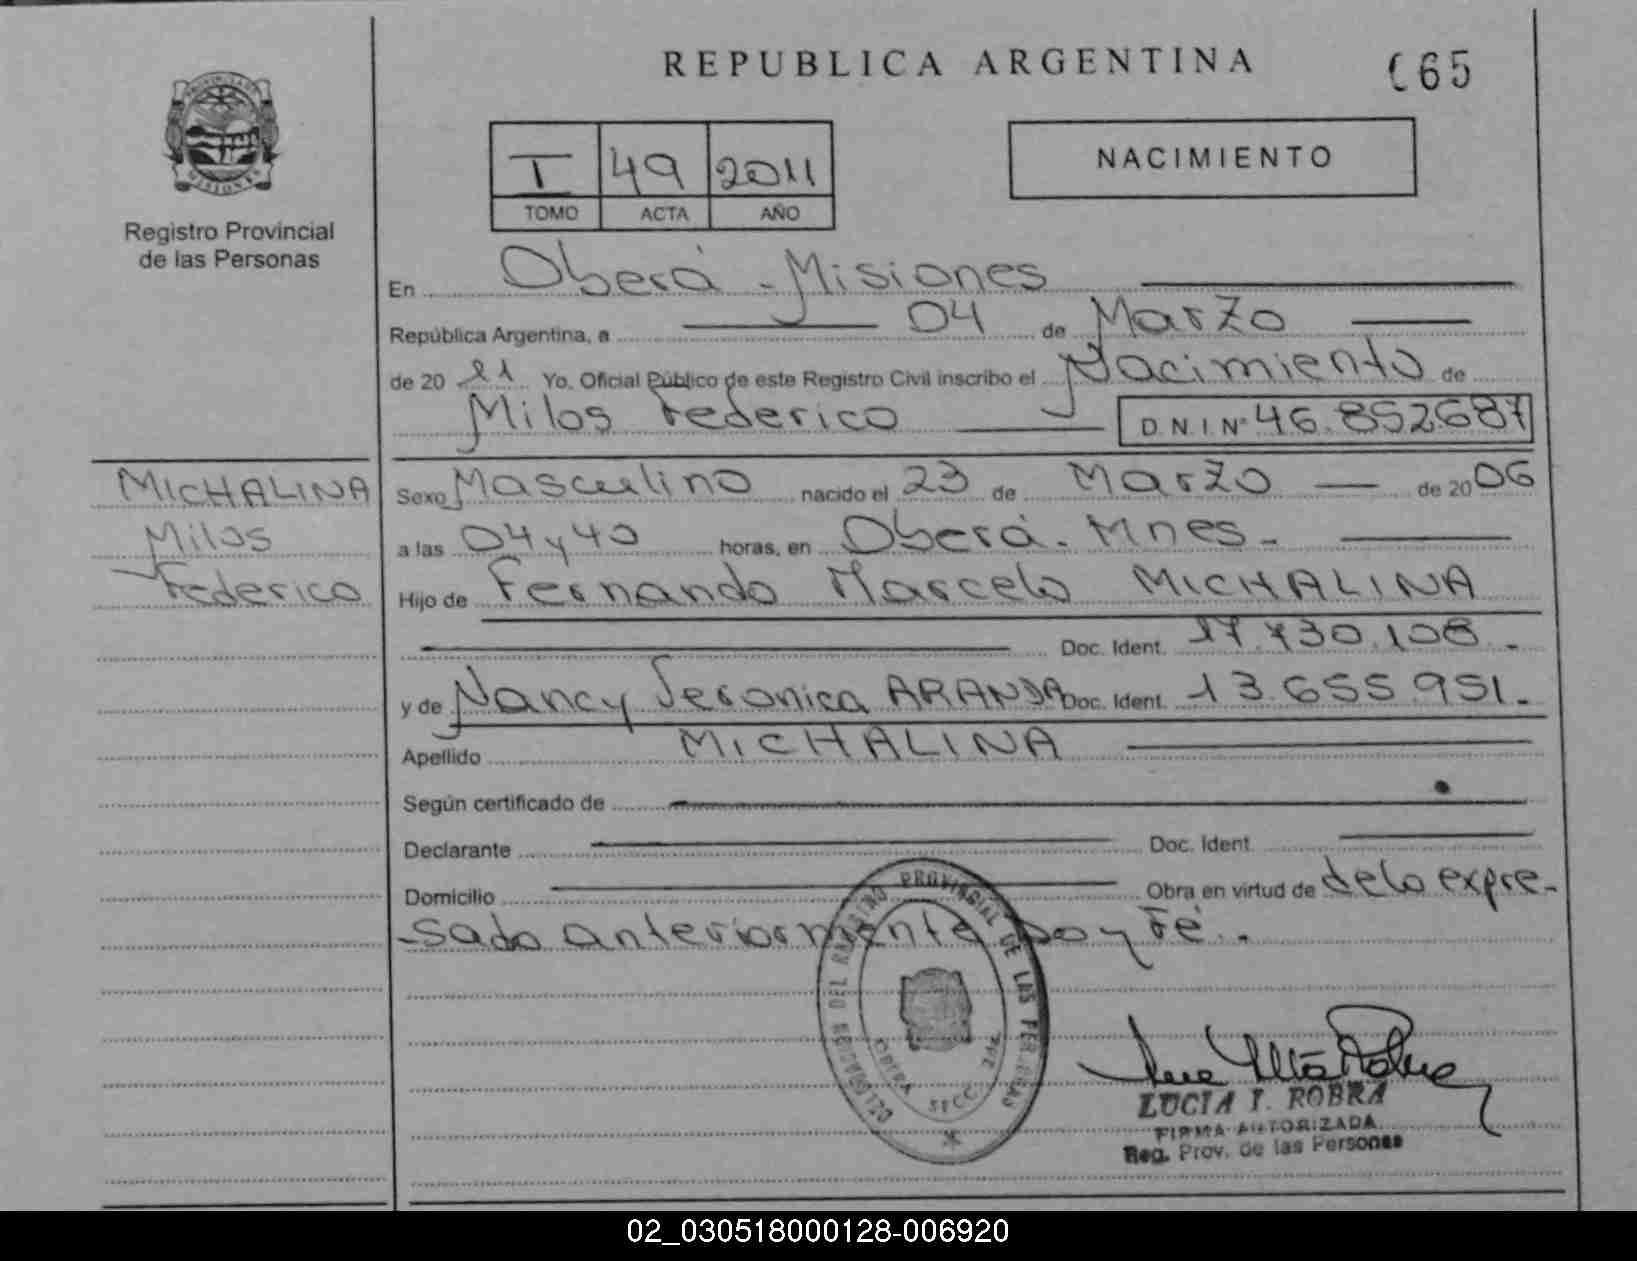 REPUBLICA ARGENTINA
065
Registro Provincial
de las Personas
I 49 2011
TOMO ACTA AÑO
NACIMIENTO
En Oberá - Misiones
República Argentina, a 04 de Marzo
de 20 11 Yo, Oficial Público de este Registro Civil inscribo el Nacimiento de
Milos Federico D.N.I. Nº 46.852687
MICHALINA
Milos
Federico
Sexo Masculino nacido el 23 de Marzo de 2006
a las 04 y 40 horas, en Oberá - Mnes -
Hijo de Fernando Marcelo MICHALINA
Doc. Ident. 17.730.108 -
y de Nancy Veronica ARANDA Doc. Ident. 13.655.951.-
Apellido MICHALINA
Según certificado de
Declarante Doc. Ident.
Domicilio Obra en virtud de de lo expre-
-sado anteriormente Doy Fé. -
PROVINCIAL DE LAS PERSONAS
OBERA SECC.
LUCIA I. ROBRA
FIRMA AUTORIZADA
Reg. Prov. de las Personas
02_030518000128-006920